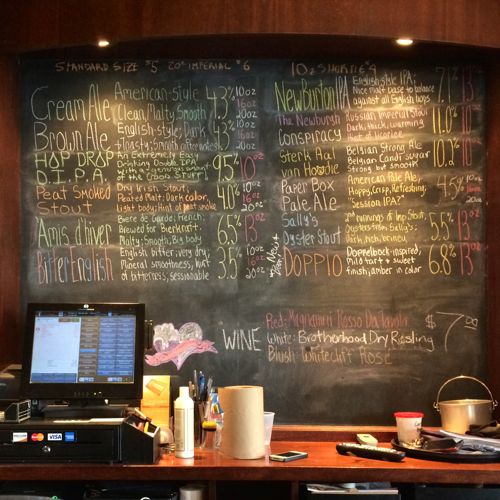 STANDARD SIZE $5 20oz IMPERIAL $6
10oz SHORTIE $4
Cream Ale
American-style
Clean/Malty; Smooth
4.3%
10oz
16oz
20oz
Brown Ale
English-style; Dark
4.3%
10oz
16oz
20oz
HOP DROP
D.I.P.A.
An Extremely Easy
Drinking Double IPA
of the Good Stuff!
9.5%
10oz
Peat Smoked
Stout
Dry Irish Stout;
Peated Malt; Dark color,
light body; Hint of peat smoke
4.0%
10oz
16oz
20oz
Amis d'hiver
Biere de Garde; French;
Brewed for Bierkraft.
Malty; Smooth, Big body
6.5%
13oz
Bitter English
English bitter; very dry;
Mineral smoothness; hint
of bitterness, sessionable
3.5%
10oz
16oz
20oz
New Burton IPA
English style IPA;
Nice malt base to balance
against all English hops
7.1%
13oz
The Newburgh
Conspiracy
Russian Imperial Stout
Dark, thick, warming
Hint of licorice
11.0%
10oz
Sterk Hal
van Hoodie
Belgian Strong Ale
Belgian Candi sugar
Strong but smooth
10.2%
10oz
Paper Box
Pale Ale
American Pale Ale;
Hoppy, Crisp, Refreshing;
"Session IPA?"
4.5%
10oz
16oz
20oz
Now Fresh!
Sally's
Oyster Stout
2nd running of Imp. Stout,
Oysters from Sally's;
Rich, Irish, briney
5.5%
13oz
DOPPIO
Doppelbock-inspired,
Mild tart & sweet
finish; amber in color
6.8%
13oz
WINE
Red: Montepulciano Rosso Da Tavola
White: Brotherhood Dry Riesling
Blush: Whitecliff Rosé
$7.00
VISA